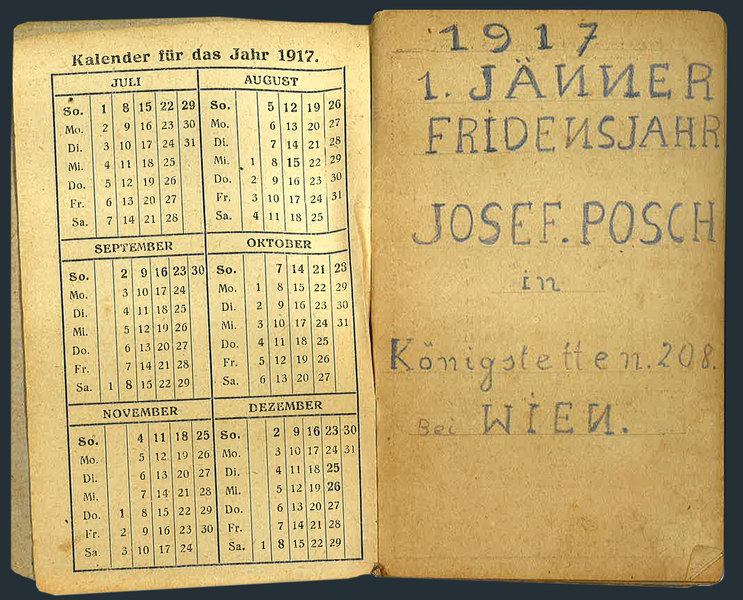 Kalender für das Jahr 1917.
JULI
So. 1 8 15 22 29
Mo. 2 9 16 23 30
Di. 3 10 17 24 31
Mi. 4 11 18 25
Do. 5 12 19 26
Fr. 6 13 20 27
Sa. 7 14 21 28
AUGUST
So. 5 12 19 26
Mo. 6 13 20 27
Di. 7 14 21 28
Mi. 1 8 15 22 29
Do. 2 9 16 23 30
Fr. 3 10 17 24 31
Sa. 4 11 18 25
SEPTEMBER
So. 2 9 16 23 30
Mo. 3 10 17 24
Di. 4 11 18 25
Mi. 5 12 19 26
Do. 6 13 20 27
Fr. 7 14 21 28
Sa. 1 8 15 22 29
OKTOBER
So. 7 14 21 23
Mo. 1 8 15 22 29
Di. 2 9 16 23 30
Mi. 3 10 17 24 31
Do. 4 11 18 25
Fr. 5 12 19 26
Sa. 6 13 20 27
NOVEMBER
So. 4 11 18 25
Mo. 5 12 19 26
Di. 6 13 20 27
Mi. 7 14 21 28
Do. 1 8 15 22 29
Fr. 2 9 16 23 30
Sa. 3 10 17 24
DEZEMBER
So. 2 9 16 23 30
Mo. 3 10 17 24 31
Di. 4 11 18 25
Mi. 5 12 19 26
Do. 6 13 20 27
Fr. 7 14 21 28
Sa. 1 8 15 22 29
1917
1. JÄNNER
FRIDENSJAHR
JOSEF. POSCH
in
Königstetten. 208.
Bei WIEN.